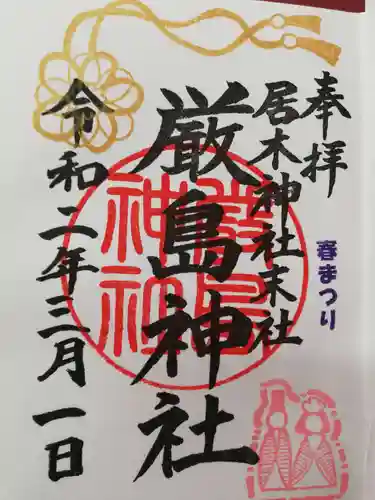 奉拝
春まつり
居木神社末社
厳島神社
令和二年三月一日